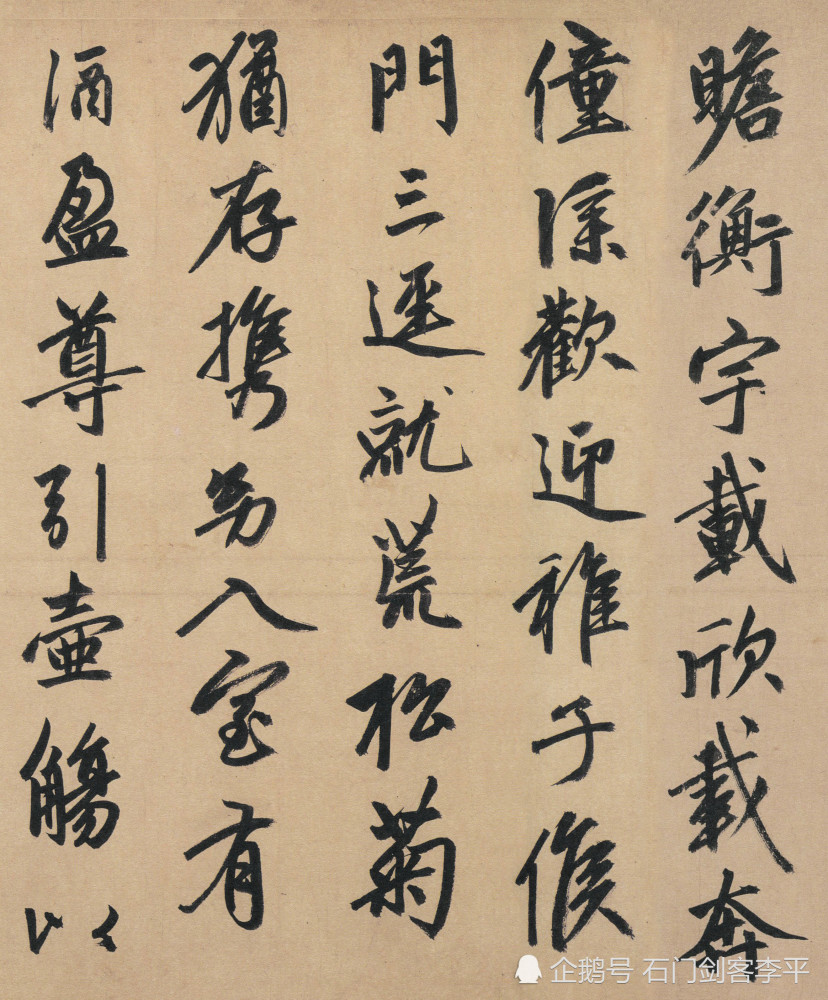 瞻衡宇載欣載奔
僮僕歡迎稚子候
門三逕就荒松菊
猶存携幼入室有
酒盈尊引壺觴以
企鹅号 石门剑客李平